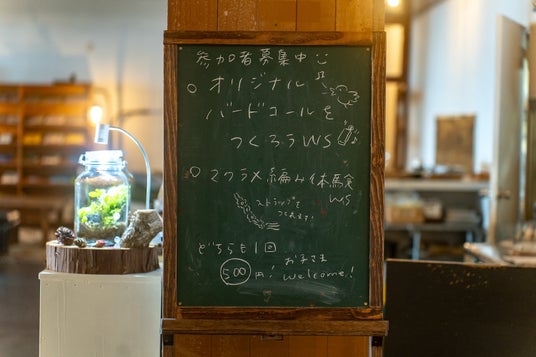 参加者募集中
○ オリジナル
バードコールを
つくろうWS
○ マクラメ編み体験
WS
ストラップを
つくれます!
どちらも1回
500円! お子さま
welcome!